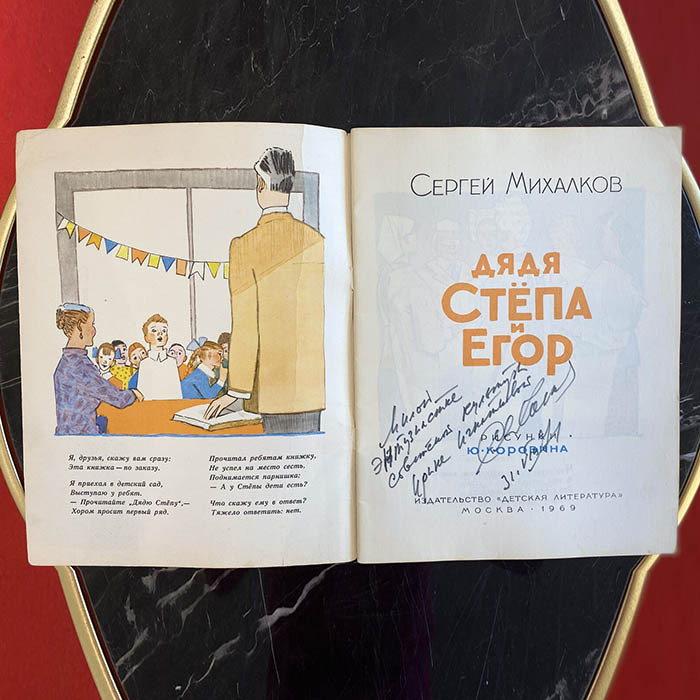 Я, друзья, скажу вам сразу:
Эта книжка — по заказу.
Я приехал в детский сад,
Выступаю у ребят.
— Прочитайте „Дядю Стёпу“,—
Хором просит первый ряд.
Прочитал ребятам книжку,
Не успел на место сесть,
Поднимается парнишка:
— А у Стёпы дети есть?
Что скажу ему в ответ?
Тяжело ответить: нет.
СЕРГЕЙ МИХАЛКОВ
ДЯДЯ
СТЁПА
И
ЕГОР
Милой
энтузиастке
советской культуры
Ирине
РИСУНКИ
Ю. КОРОВИНА
31.
ИЗДАТЕЛЬСТВО «ДЕТСКАЯ ЛИТЕРАТУРА»
МОСКВА · 1969